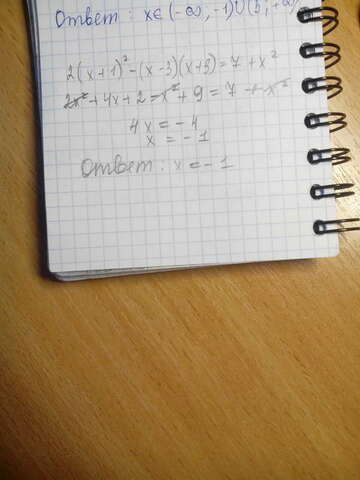 Ответ: x∈(-∞,-1)∪(3,+∞)
2(x+1)²-(x-3)(x+3)=7+x²
2x²+4x+2-x²+9=7+x²
4x=-4
x=-1
Ответ: x=-1